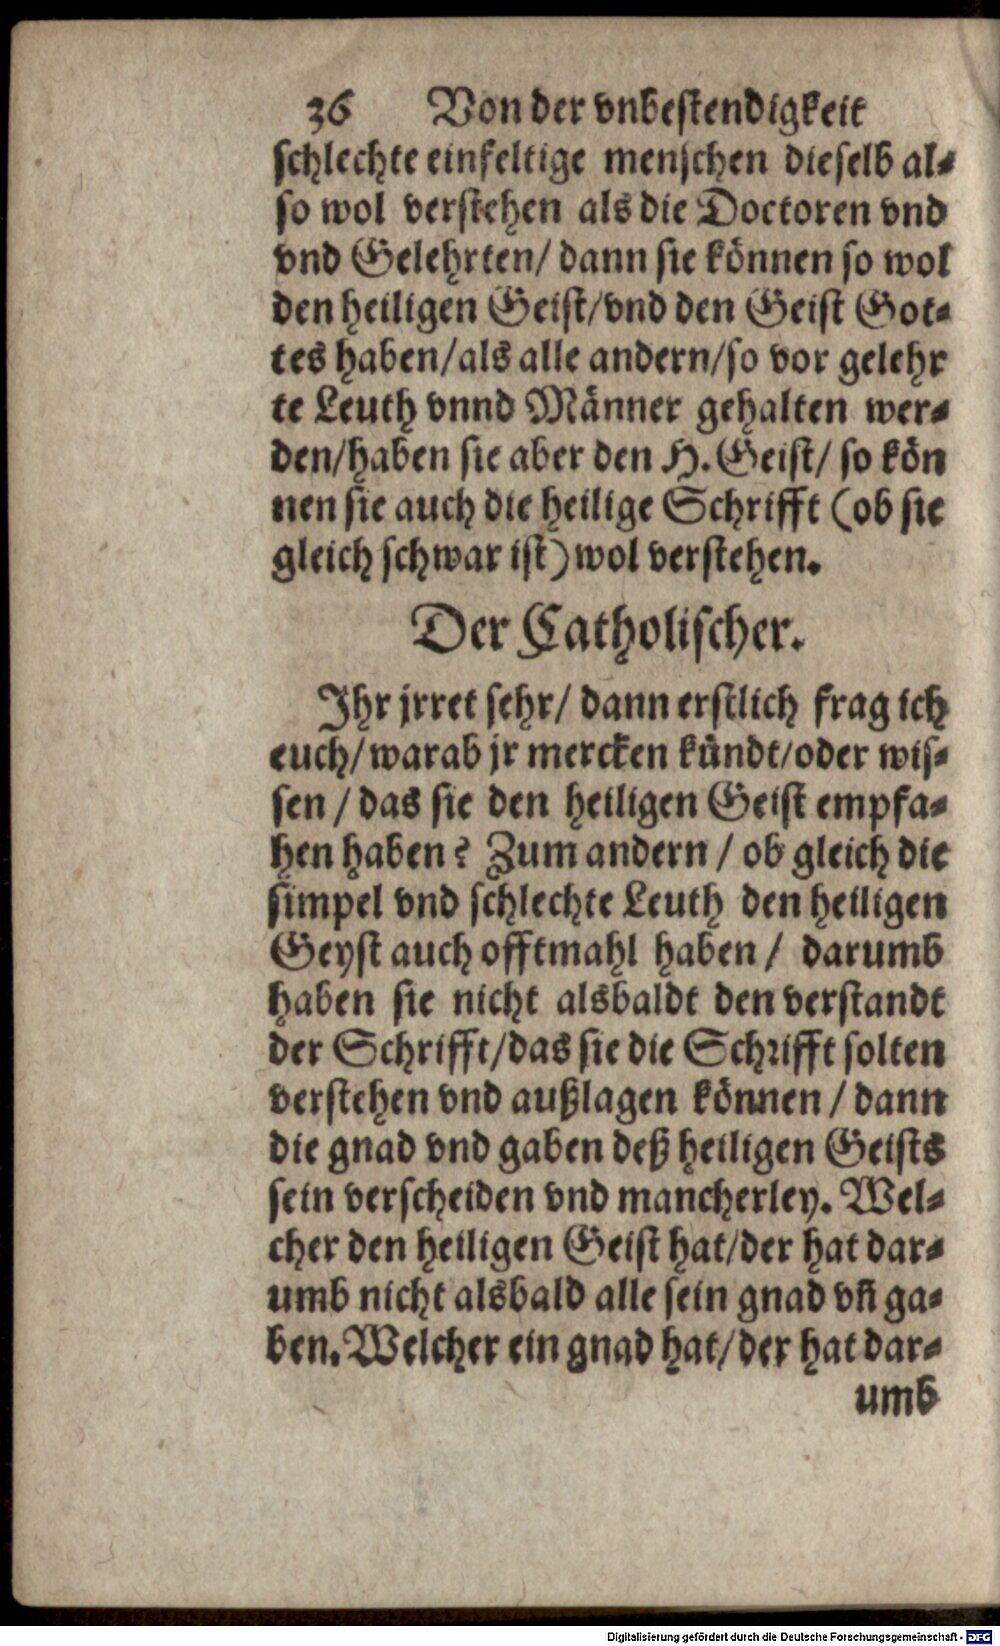 36 Von der vnbestendigkeit
schlechte einfeltige menschen dieselb al-
so wol verstehen als die Doctoren vnd
vnd Gelehrten/ dann sie können so wol
den heiligen Geist/vnd den Geist Got-
tes haben/als alle andern/so vor gelehr
te Leuth vnnd Männer gehalten wer-
den/haben sie aber den H. Geist/ so kön
nen sie auch die heilige Schrifft (ob sie
gleich schwar ist) wol verstehen.
Der Catholischer.
Ihr jrret sehr/ dann erstlich frag ich
euch/ warab jr mercken kündt/oder wis-
sen / das sie den heiligen Geist empfa-
hen haben? Zum andern / ob gleich die
simpel vnd schlechte Leuth den heiligen
Geyst auch offtmahl haben / darumb
haben sie nicht alsbaldt den verstandt
der Schrifft/das sie die Schrifft solten
verstehen vnd außlagen können / dann
die gnad vnd gaben deß heiligen Geists
sein verscheiden vnd mancherley. Wel-
cher den heiligen Geist hat/der hat dar-
umb nicht alsbald alle sein gnad vn̄ ga-
ben. Welcher ein gnad hat/der hat dar-
umb
Digitalisierung gefördert durch die Deutsche Forschungsgemeinschaft - DFG